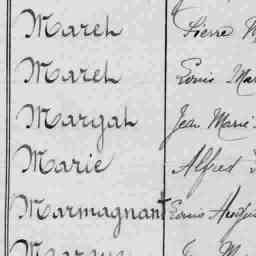 Maret Pierre
Maret Louis Mar
Margat Jean Marie
Marie Alfred
Marmagnant Louis